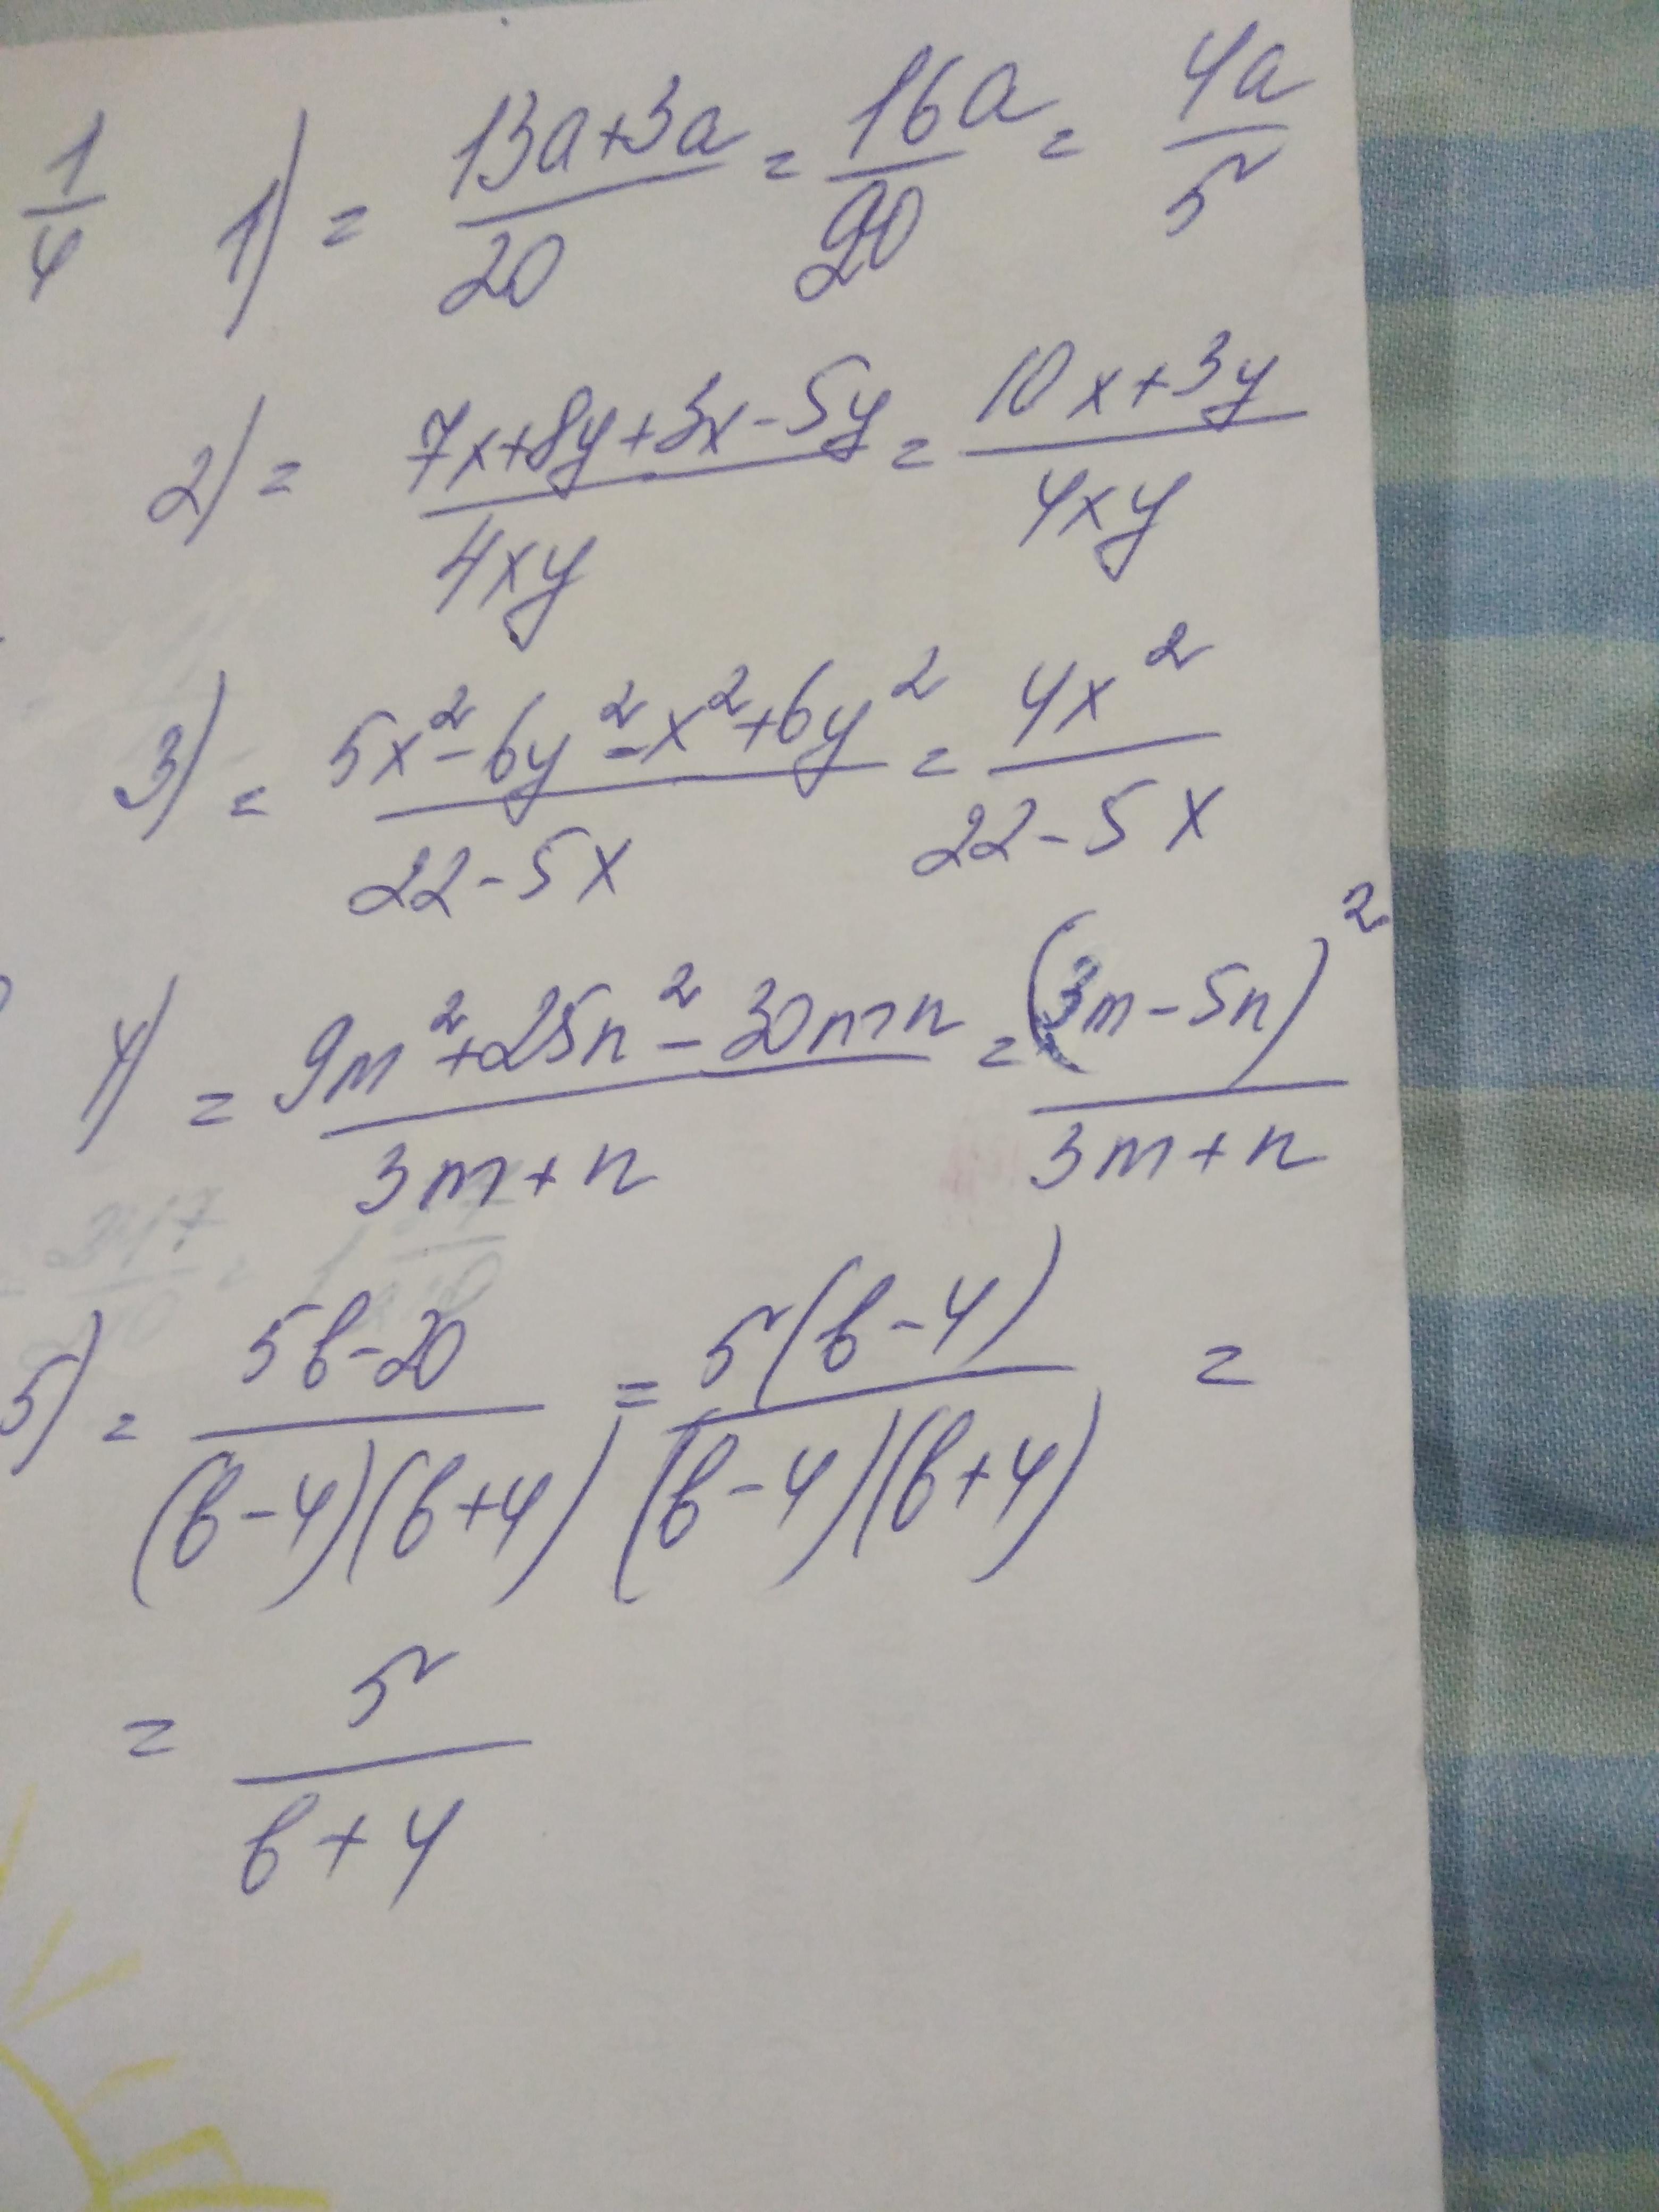 1/4 1) = (13a+3a)/20 = 16a/20 = 4a/5
2) = (7x+8y+3x-5y)/4xy = (10x+3y)/4xy
3) = (5x²-6y²-x²+6y²)/(22-5x) = 4x²/(22-5x)
4) = (9m²+25n²-30mn)/(3m+n) = (3m-5n)²/(3m+n)
5) = (5b-20)/((b-4)(b+4)) = 5(b-4)/((b-4)(b+4)) =
= 5/(b+4)